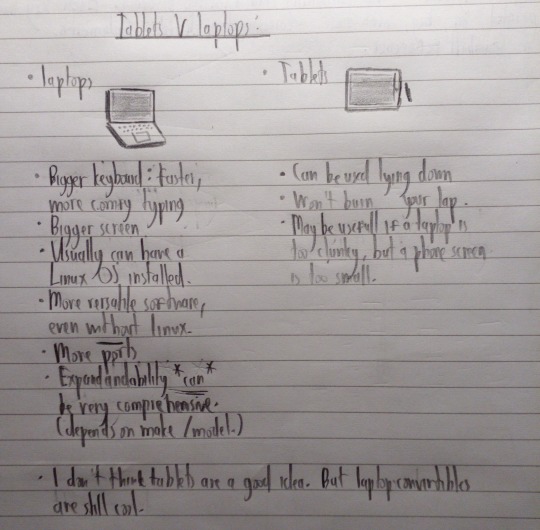 Tablets V laptops:
• laptops
• Bigger keyboard: faster,
more comfy typing
• Bigger screen
• Usually can have a
Linux OS installed.
• More versatile software,
even without linux.
• More ports
• Expandandability *can*
be very comprehensive.
(depends on make/model.)
• Tablets
• Can be used lying down
• Won't burn your lap.
• May be usefull if a laptop is
too clunky, but a phone screen
is too small.
• I don't think tablets are a good idea. But laptop convertibles
are still cool.